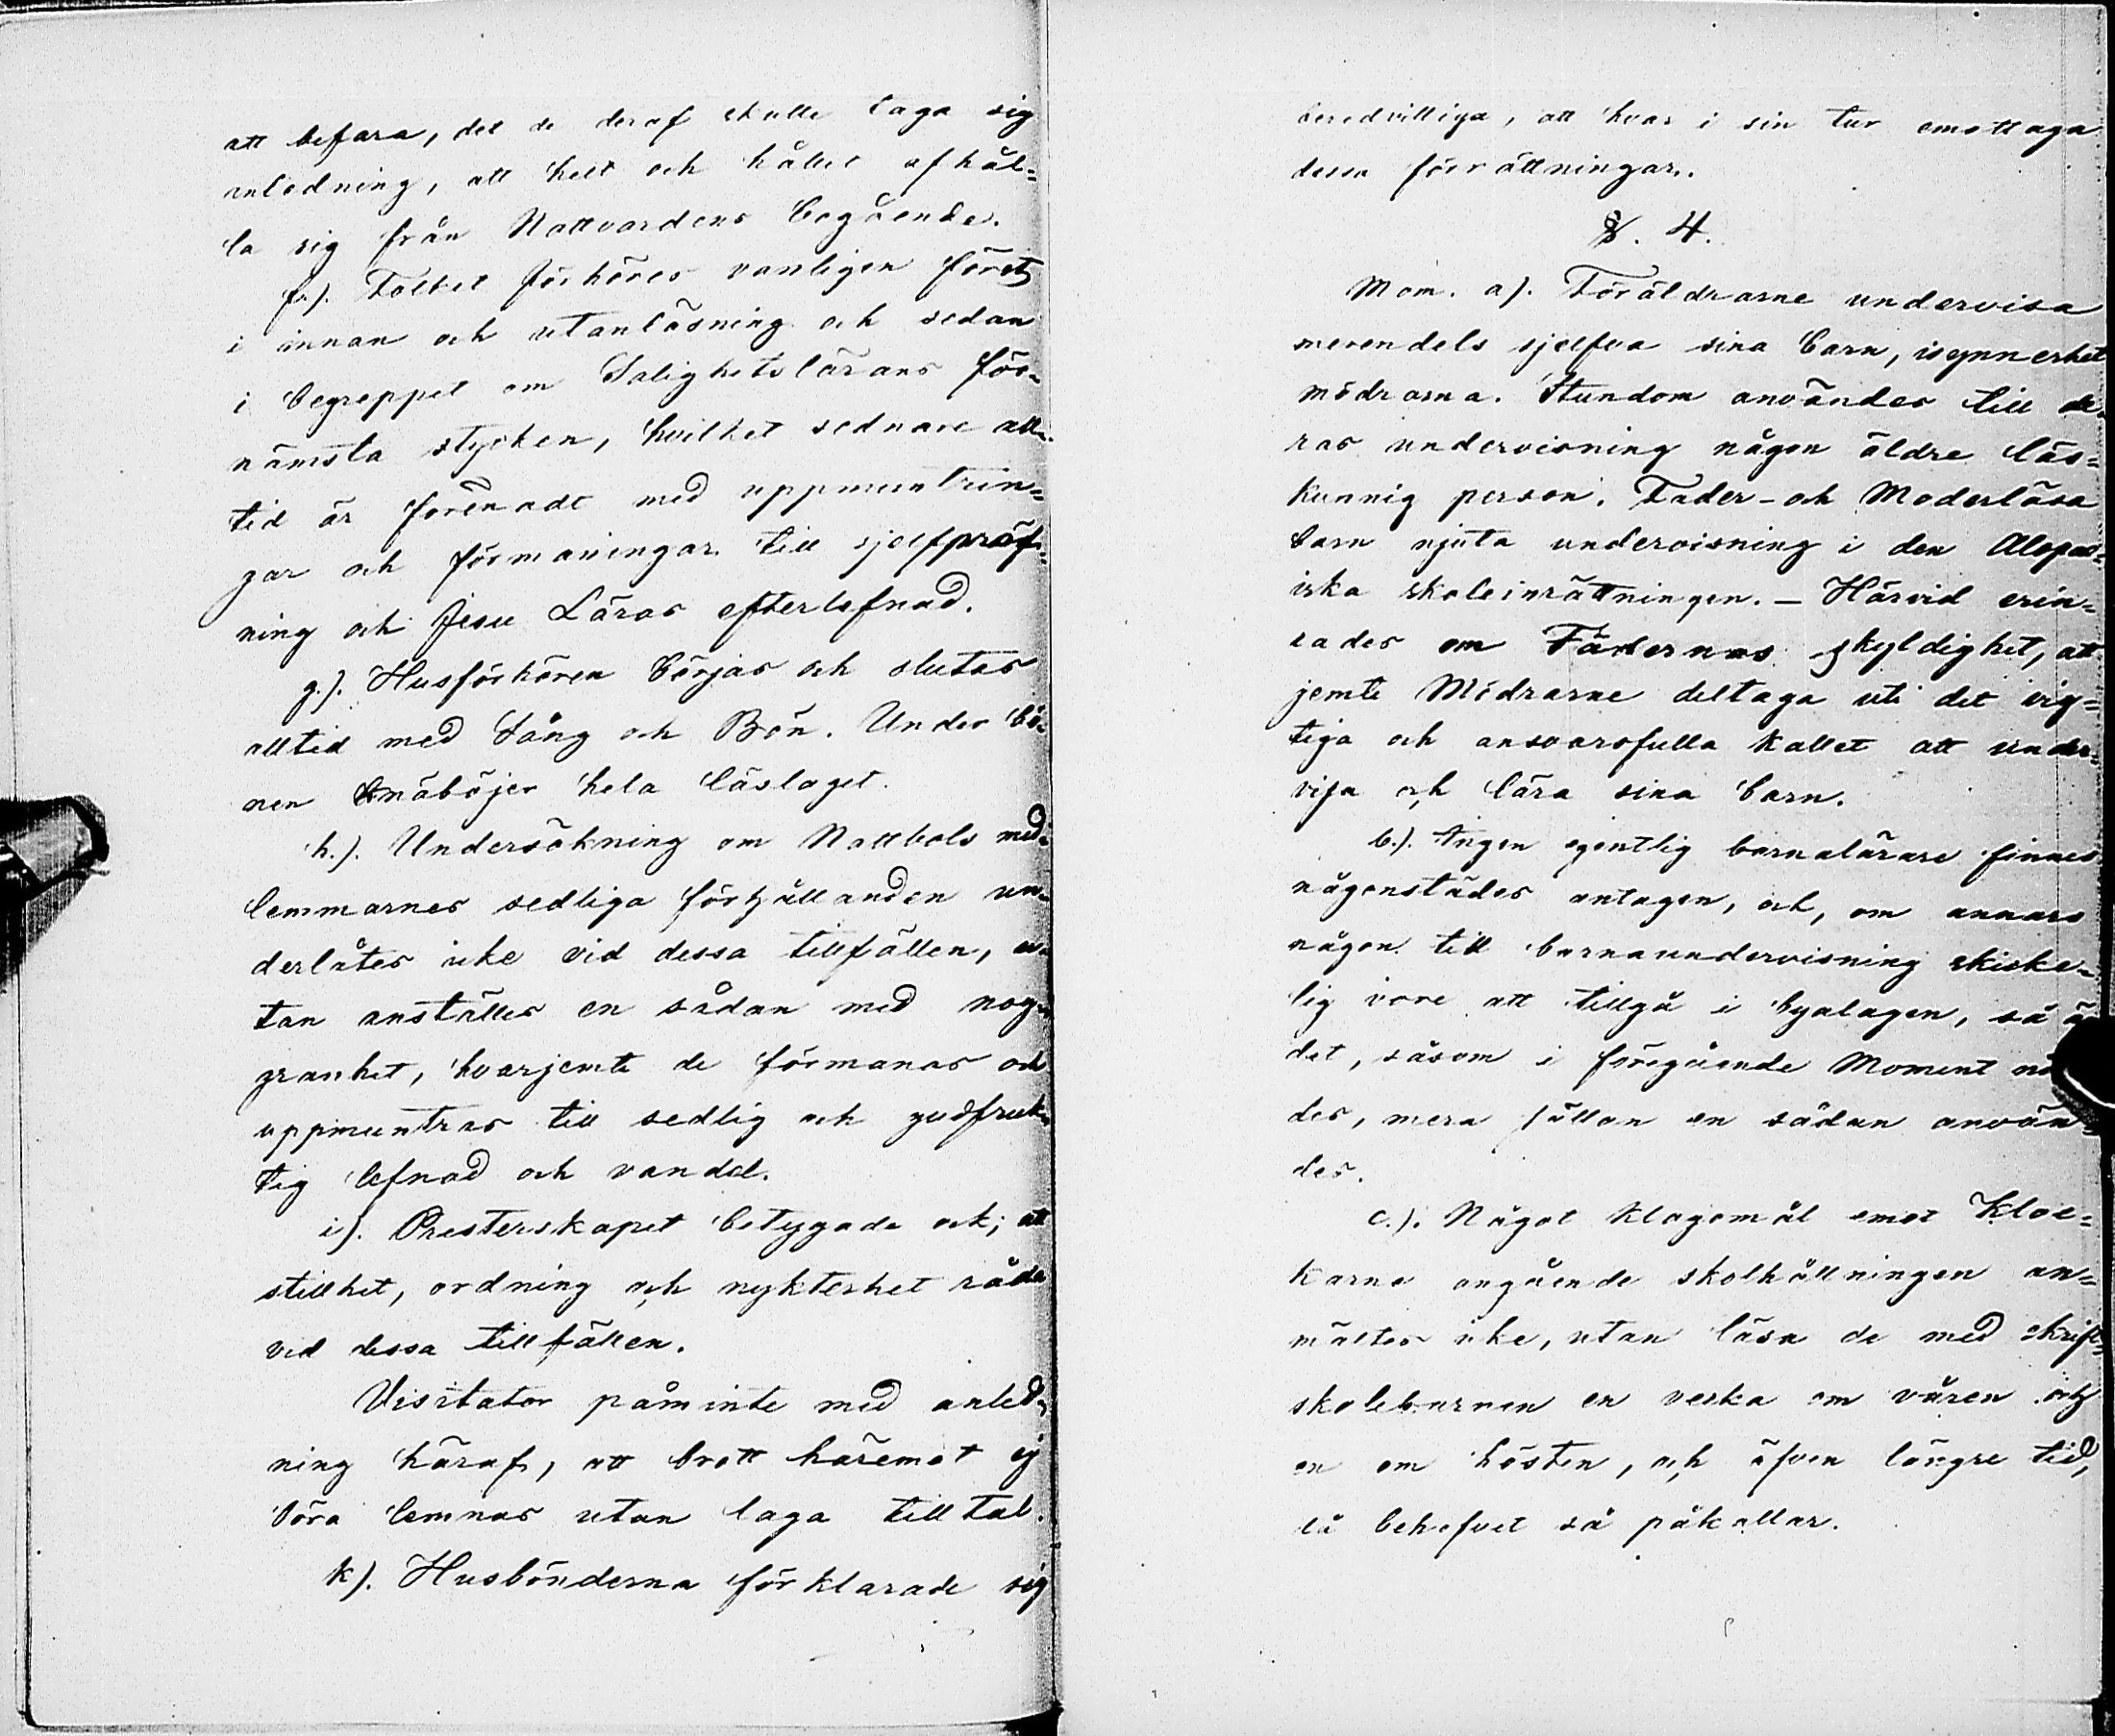 att befara, det de deraf skulle taga sig
anledning, att helt och hållet afhål=
la sig från Nattvardens begående.
f.). Folket förhöres vanligen först
i innan och utanläsning och sedan
i begreppet om Salighetslärans för=
nämsta stycken, hvilket sednare all=
tid är förenadt med uppmuntrin=
gar och förmaningar till sjelfpröf=
ning och Jesu Läras efterlefnad.
g.). Husförhören börjas och slutas
alltid med Sång och Bön. Under bö=
nen knäböjer hela läslaget.
h.). Undersökning om Matthols med=
lemmarnes sedliga förhållanden un=
derlåtes icke vid dessa tillfällen, u=
tan anställes en sådan med nog=
granhet, hvarjemte de förmanas och
uppmuntras till sedlig och gudfruk=
tig lefnad och vandel.
i). Presterskapet betygade ock, att
stillhet, ordning och nykterhet råda
vid dessa tillfällen.
Visitator påminte med anled=
ning häraf, att brott häremot ej
böra lemnas utan laga tilltal.
k). Husbönderna förklarade sig
beredvilliga, att hvar i sin tur emottaga
dessa förrättningar.
§. 4.
Mom. a). Föräldrarne undervisa
merendels sjelfva sina barn, isynnerhet
mödrarna. Stundom användes till de=
ras undervisning någon äldre läs=
kunnig person. Fader- och Moderlösa
barn njuta undervisning i den Alopæ=
iska skoleinrättningen. — Härvid erin=
rades om Fädernas skyldighet, att
jemte Mödrarne deltaga uti det vig=
tiga och ansvarsfulla kallet att under=
visa och lära sina barn.
b.). Ingen egentlig barnalärare finnes
någonstädes antagen, och, om annars
någon till barnaundervisning skicke=
lig vore att tillgå i byalagen, så är
det, såsom i föregående Moment
des, mera sällan en sådan använ=
des.
c.). Något klagomål emot Kloc=
karne angående skolhållningen an=
mältes icke, utan läsa de med skrift=
skolebarnen en vecka om våren och
en om hösten, och äfven längre tid,
då behofvet så påkallar.